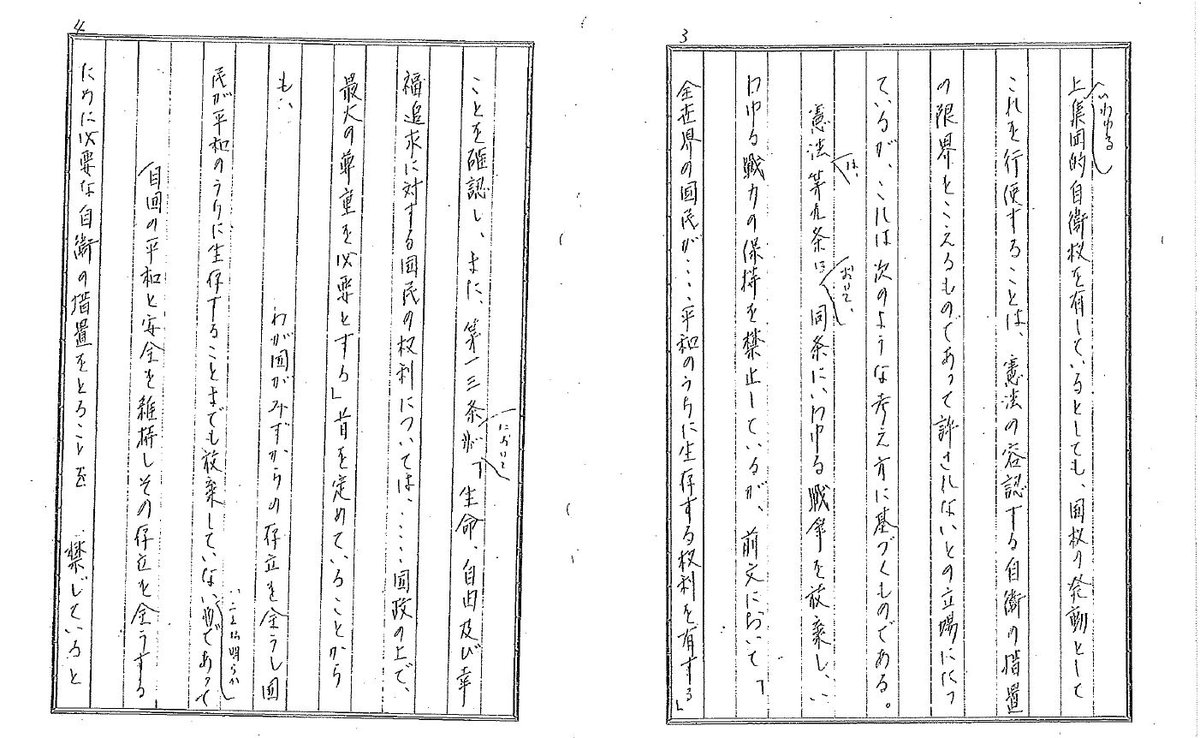 3
いわゆる
上集団的自衛権を有しているとしても、国権の発動として
これを行使することは、憲法の容認する自衛の措置
の限界をこえるものであって許されないとの立場にたっ
ているが、これは次のような考え方に基づくものである。
は、
おいて、
憲法第九条に同条にいわゆる戦争を放棄し、い
わゆる戦力の保持を禁止しているが、前文において「
全世界の国民が…平和のうちに生存する権利を有する」
4
において
ことを確認し、また、第一三条が「生命、自由及び幸
福追求に対する国民の権利については、……国政の上で、
最大の尊重を必要とする」旨を定めていることから
も、 わが国がみずからの存立を全うし国
民が平和のうちに生存することまでも放棄していない であって
ことは明らか
自国の平和と安全を維持しその存立を全うする
ために必要な自衛の措置をとることを 禁じていると